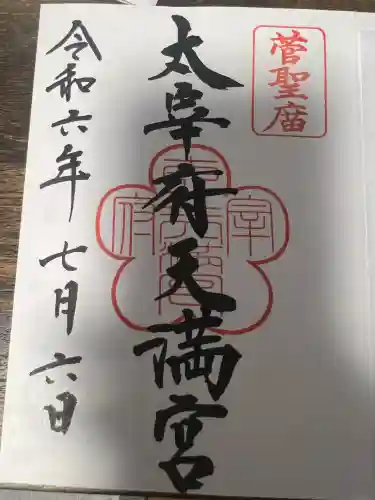 菅聖庿
太宰府天満宮
令和六年七月六日